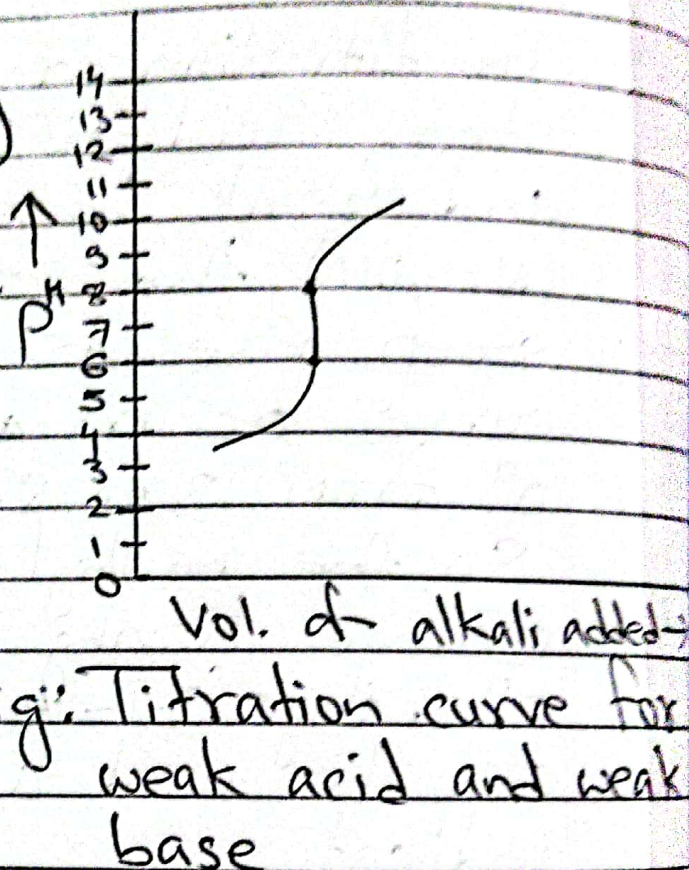 14
13
12
11
10
9
8
7
6
5
4
3
2
1
0
pH
Vol. of alkali added
g: Titration curve for
weak acid and weak
base